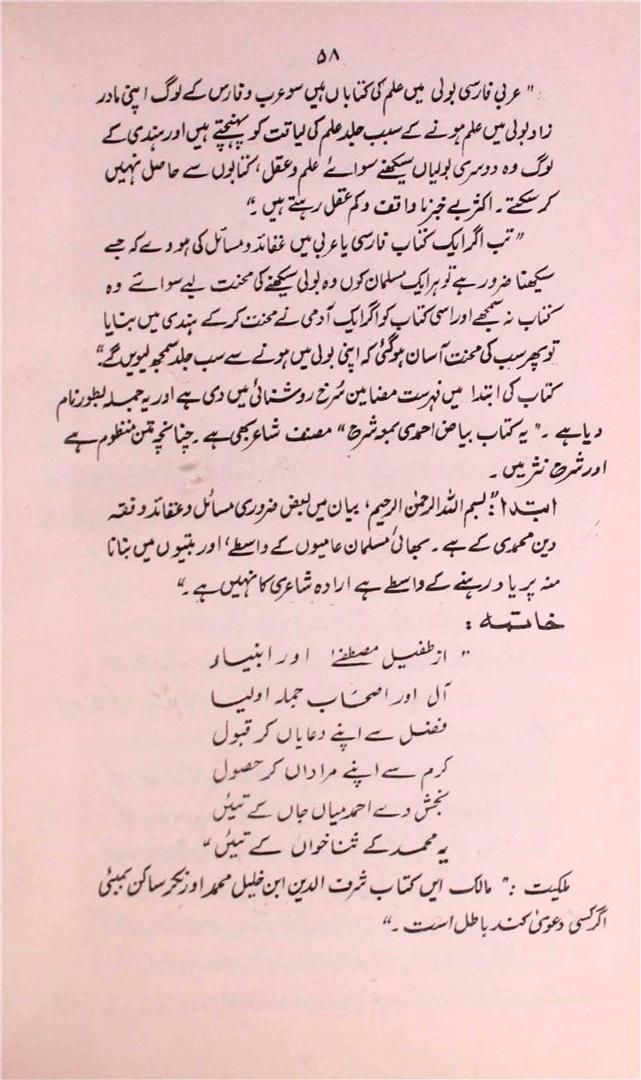 ۵۸
" عربی فارسی بولی میں علم کی کتاباں ہیں سو عرب و فارس کے لوگ اپنی مادر
زاد بولی میں علم ہونے کے سبب جلد علم کی لیاقت کو پہنچتے ہیں اور ہندی کے
لوگ وہ دوسری بولیاں سیکھنے سوائے علم و عقل، کتابوں سے حاصل نہیں
کر سکتے۔ اکثر بے خبر نا واقف و کم عقل رہتے ہیں ۔"
" تب اگر ایک کتاب فارسی یا عربی میں عقائد و مسائل کی ہو وے کہ جسے
سیکھنا ضرور ہے تو ہر ایک مسلمان کوں وہ بولی سیکھنے کی محنت لیے سوائے وہ
کتاب نہ سمجھے اور اسی کتاب کو اگر ایک آدمی نے محنت کر کے ہندی میں بنایا
تو پھر سب کی محنت آسان ہو گئی کہ اپنی بولی میں ہونے سے سب جلد سمجھ لیویں گے۔"
کتاب کی ابتدا میں فہرست مضامین سُرخ روشنائی میں دی ہے اور یہ جملہ بطور نام
دیا ہے ۔ " یہ کتاب بیاض احمدی بمو شرح " مصنف شاعر بھی ہے ۔ چنانچہ متن منظوم ہے
اور شرح نثر میں ۔
ابتدا: " بسم اللہ الرحمٰن الرحیم، بیان میں بعض ضروری مسائل و عقائد و فقہ
دین محمدی کے ہے ۔ بھائی مسلمان عامیوں کے واسطے، اور بیتوں میں بنانا
منہ پر یاد رہنے کے واسطے ہے ارادہ شاعری کا نہیں ہے ۔"
خاتمہ :
" از طفیل مصطفےٰ اور انبیاء
آل اور اصحاب جملہ اولیا
فضل سے اپنے دعایاں کر قبول
کرم سے اپنے مراداں کر حصول
بخش دے احمد میاں جاں کے تیئں
یہ محمد کے ثنا خواں کے تیئں "
ملکیت : " مالک ایں کتاب شرف الدین ابن خلیل محمد اور بحر ساکن بمبئی
اگر کسی دعویٰ کند باطل است ۔"